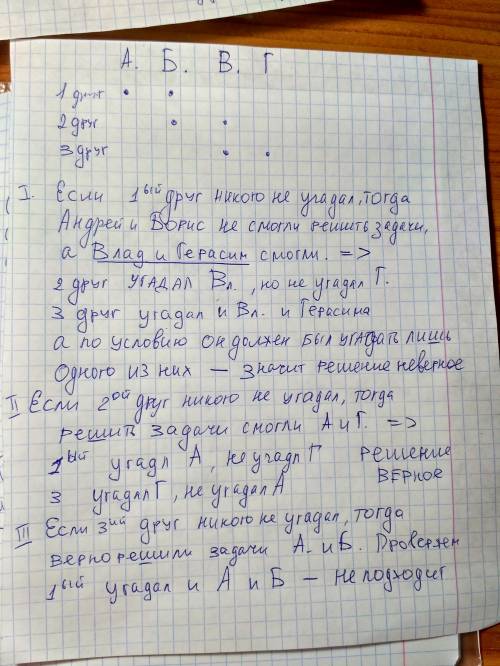 А. Б. В. Г
1 друг • •
2 друг • •
3 друг • •
I. Если 1ый друг никого не угадал, тогда
Андрей и Борис не смогли решить задачи,
а Влад и Герасим смогли. =>
2 друг угадал Вл., но не угадал Г.
3 друг угадал и Вл. и Герасима
а по условию он должен был угадать лишь
одного из них — значит решение неверное
II Если 2ой друг никого не угадал, тогда
решить задачи смогли А и Г. =>
1ый угадл А, не угадл Г решение
3 угадал Г, не угадал А верное
III Если 3ий друг никого не угадал, тогда
верно решили задачи А. и Б. Проверяем
1ый угадал и А и Б — не подходит